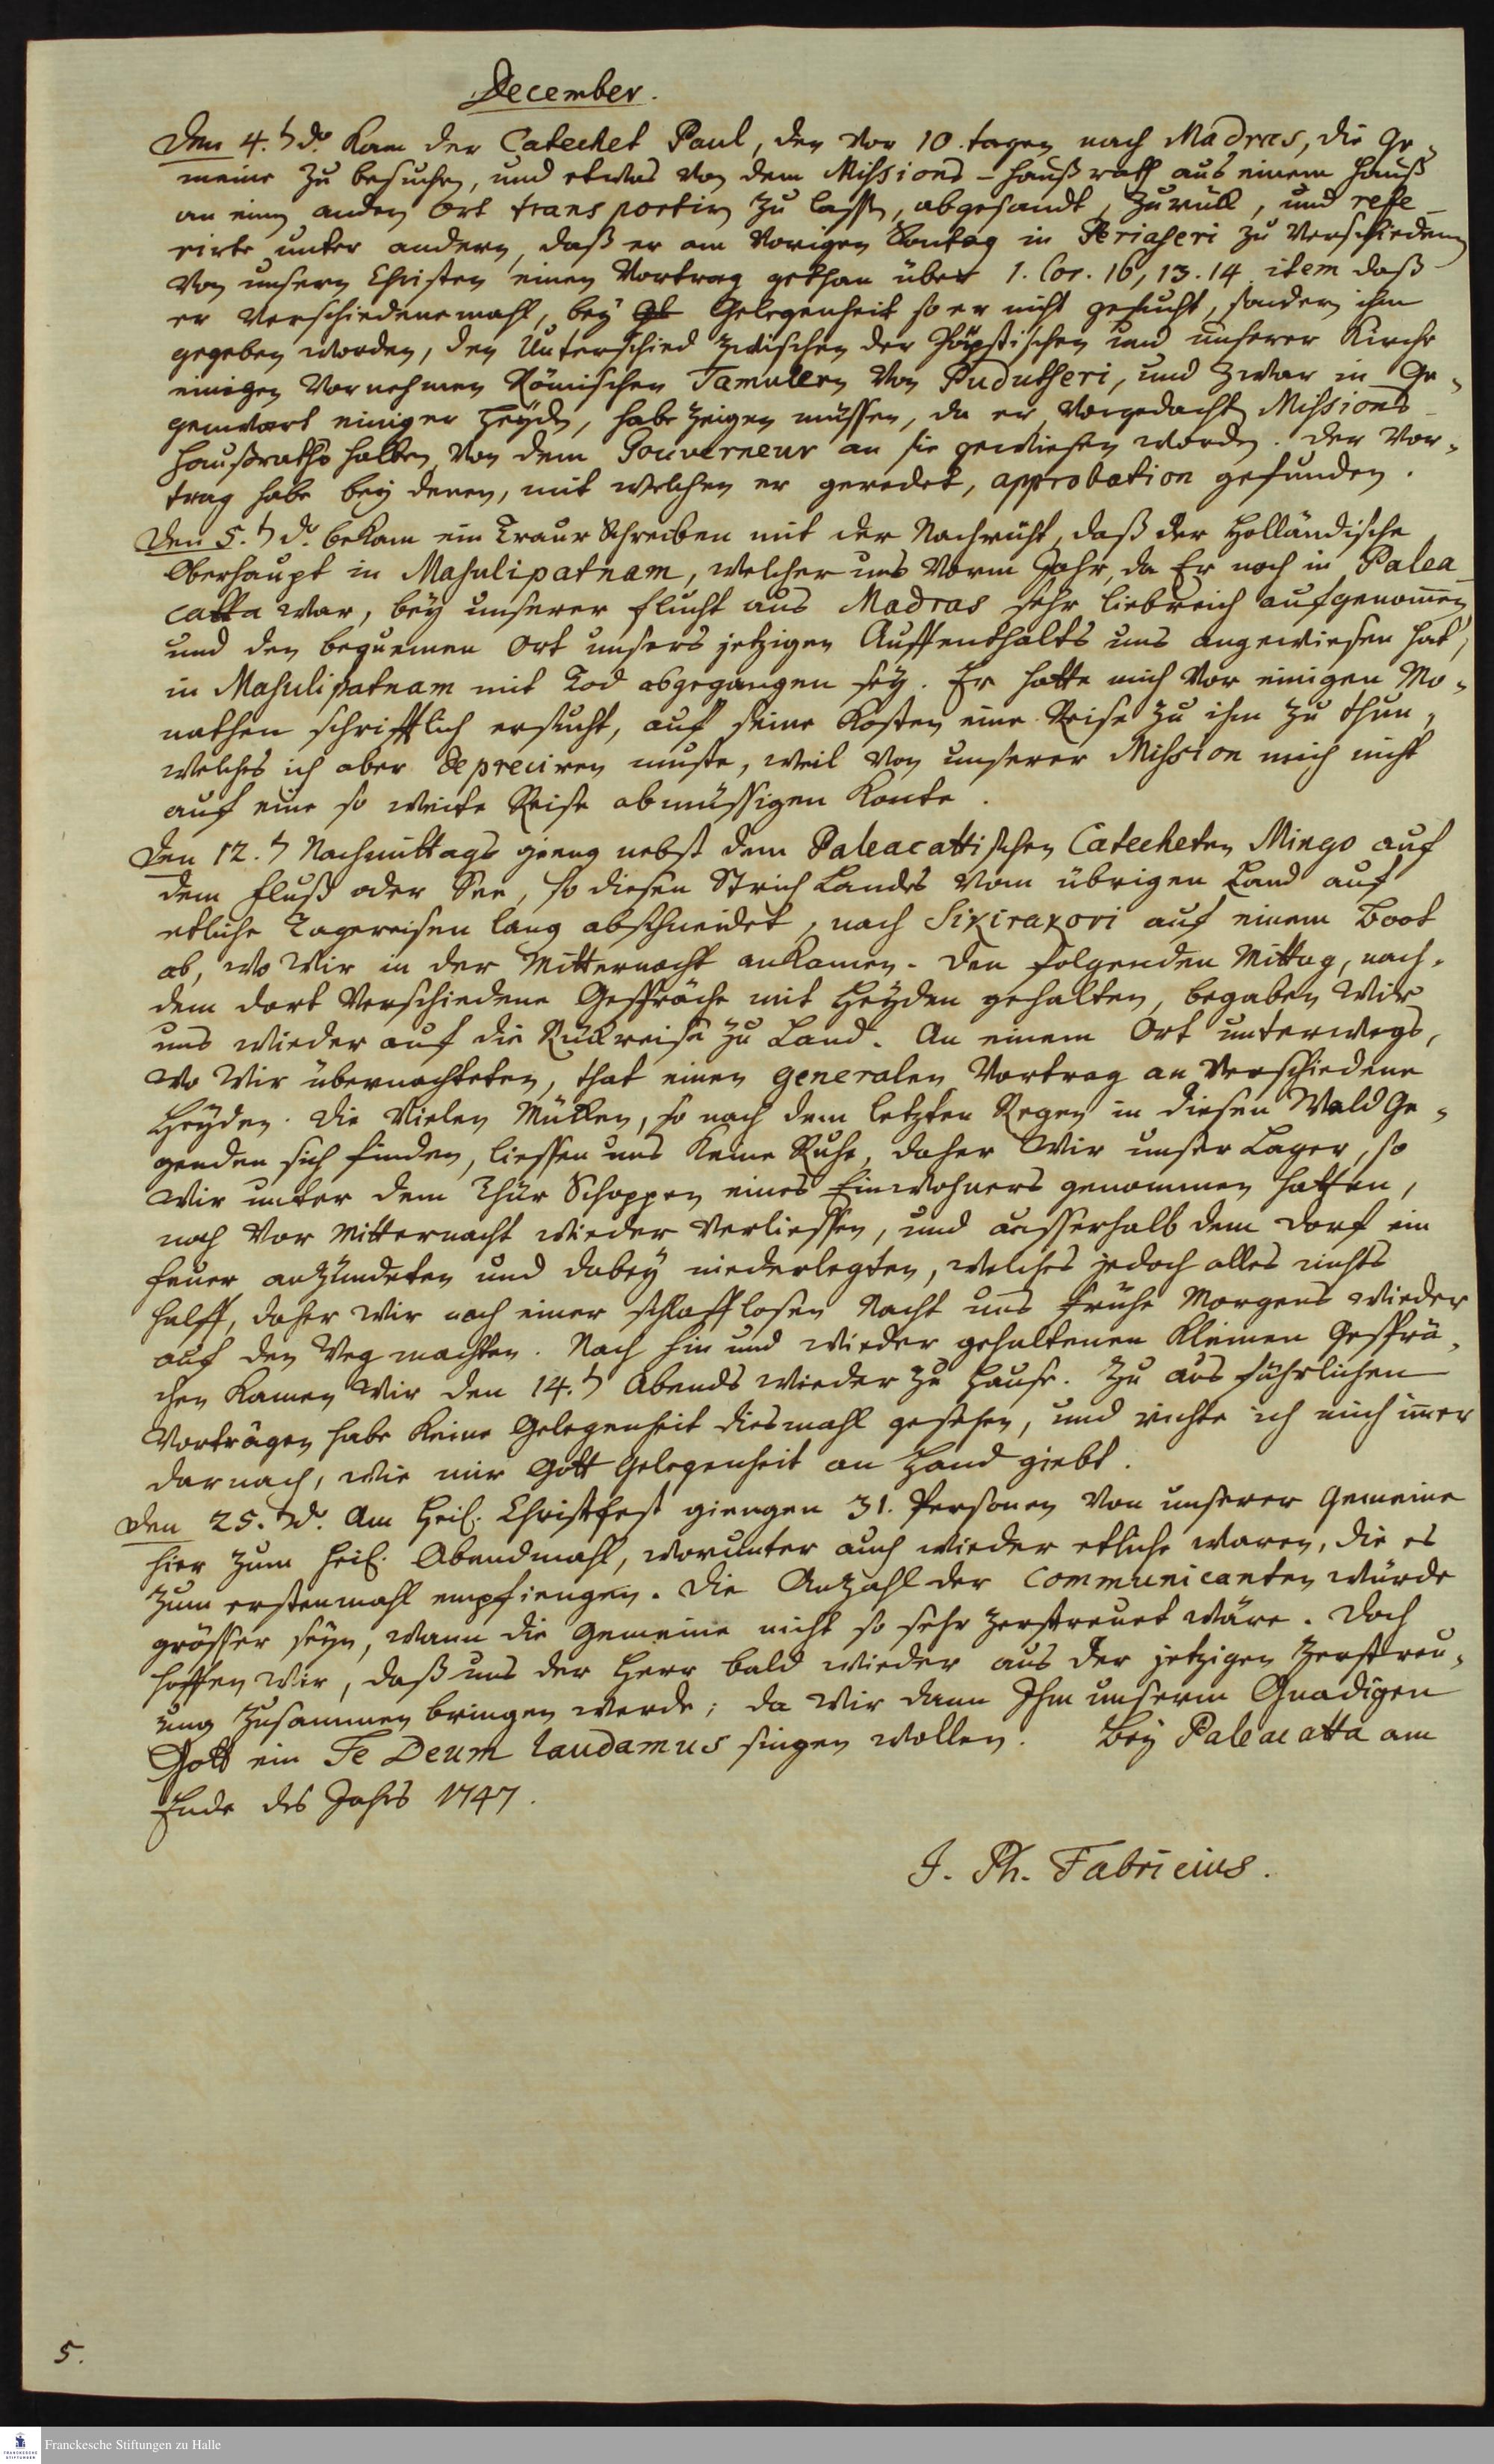 December.
Den 4.ten do. kam der Catechet Paul, der vor 10. tagen nach Madras, die Ge-
meine zu besuchen, und etwas von dem Missions-Haußrath aus einem Hauß
an einen andern Ort transportiren zu lassen, abgesandt, zurück, und refe-
rirte unter andern, daß er am vorigen Sontag in Periaseri zu verschiedenen
von unsern Christen einen Vortrag gethan über 1. Cor. 16, 13.14. item daß
er verschiedenemahl, bey Gelegenheit so er nicht gesucht, sondern ihm
gegeben worden, den Unterschied zwischen der Päpstischen und unserer Kirche
einigen Vornehmen Römischen Tamulern von Pudutscheri, und zwar in Ge-
genwart einiger Heyden, habe zeigen müssen, da er vorgedachten Missions-
Haußraths halben von dem Gouverneur an sie gewiesen worden. Der Vor-
trag habe bey denen, mit welchen er geredet, approbation gefunden.
Den 5.ten do. bekam ein Traur Schreiben mit der Nachricht, daß der Holländische
Oberhaupt in Masulipatnam, welcher uns vorm Jahr, da Er noch in Palea-
catta war, bey unserer Flucht aus Madras sehr liebreich aufgenommen
und den bequemen Ort unsers jetzigen Auffenthalts uns angewiesen hat,
in Masulipatnam mit Tod abgegangen sey. Er hatte mich vor einigen Mo-
nathen schrifftlich ersucht, auf seine Kosten eine Reise zu ihm zu thun,
welches ich aber depreciren muste, weil von unserer Mission mich nicht
auf eine so weite Reise abmüssigen konte.
Den 12.ten Nachmittags gieng nebst dem Paleacattischen Catecheten Mingo auf
dem Fluß oder See, so diesen Strich Landes vom übrigen Land auf
etliche Tagereisen lang abschneidet, nach Sixiraxori auf einem Boot
ab, wo wir in der Mitternacht ankamen. Den folgenden Mittag, nach-
dem dort verschiedene Gespräche mit Heyden gehalten, begaben wir
uns wieder auf die Rückreise zu Land. An einem Ort unterwegs,
wo wir übernachteten, that einen generalen Vortrag an verschiedene
Heyden. Die vielen Mücken, so nach dem letzten Regen in diesen Wald Ge-
genden sich finden, liessen uns keine Ruhe, daher wir unser Lager, so
wir unter dem Thür Schoppen eines Einwohners genommen hatten,
noch vor Mitternacht wieder verliessen, und ausserhalb dem Dorf ein
Feuer anzündeten und dabey niederlegten, welches jedoch alles nichts
halff, daher wir nach einer schlafflosen Nacht uns frühe Morgens wieder
auf den Weg machten. Nach hin und wieder gehaltenen kleinen Gesprä-
chen kamen wir den 14.ten Abends wieder zu Hause. Zu ausführlichen
Vorträgen habe keine Gelegenheit diesmahl gesehen, und richte ich mich immer
darnach, wie mir Gott Gelegenheit an Hand giebt.
Den 25.ten do. Am Heil. Christfest giengen 31. Personen von unserer Gemeine
hier zum Heil. Abendmahl, worunter auch wieder etliche waren, die es
zum erstenmahl empfiengen. Die Anzahl der Communicanten würde
grösser seyn, wann die Gemeine nicht so sehr zerstreuet wäre. Doch
hoffen wir, daß uns der Herr bald wieder aus der jetzigen Zerstreu-
ung zusammen bringen werde; da wir dann Ihm unserm Gnädigen
Gott ein Te Deum laudamus singen wollen. Bey Paleacatta am
Ende des Jahrs 1747.
J. Ph. Fabricius.
5.
Franckesche Stiftungen zu Halle